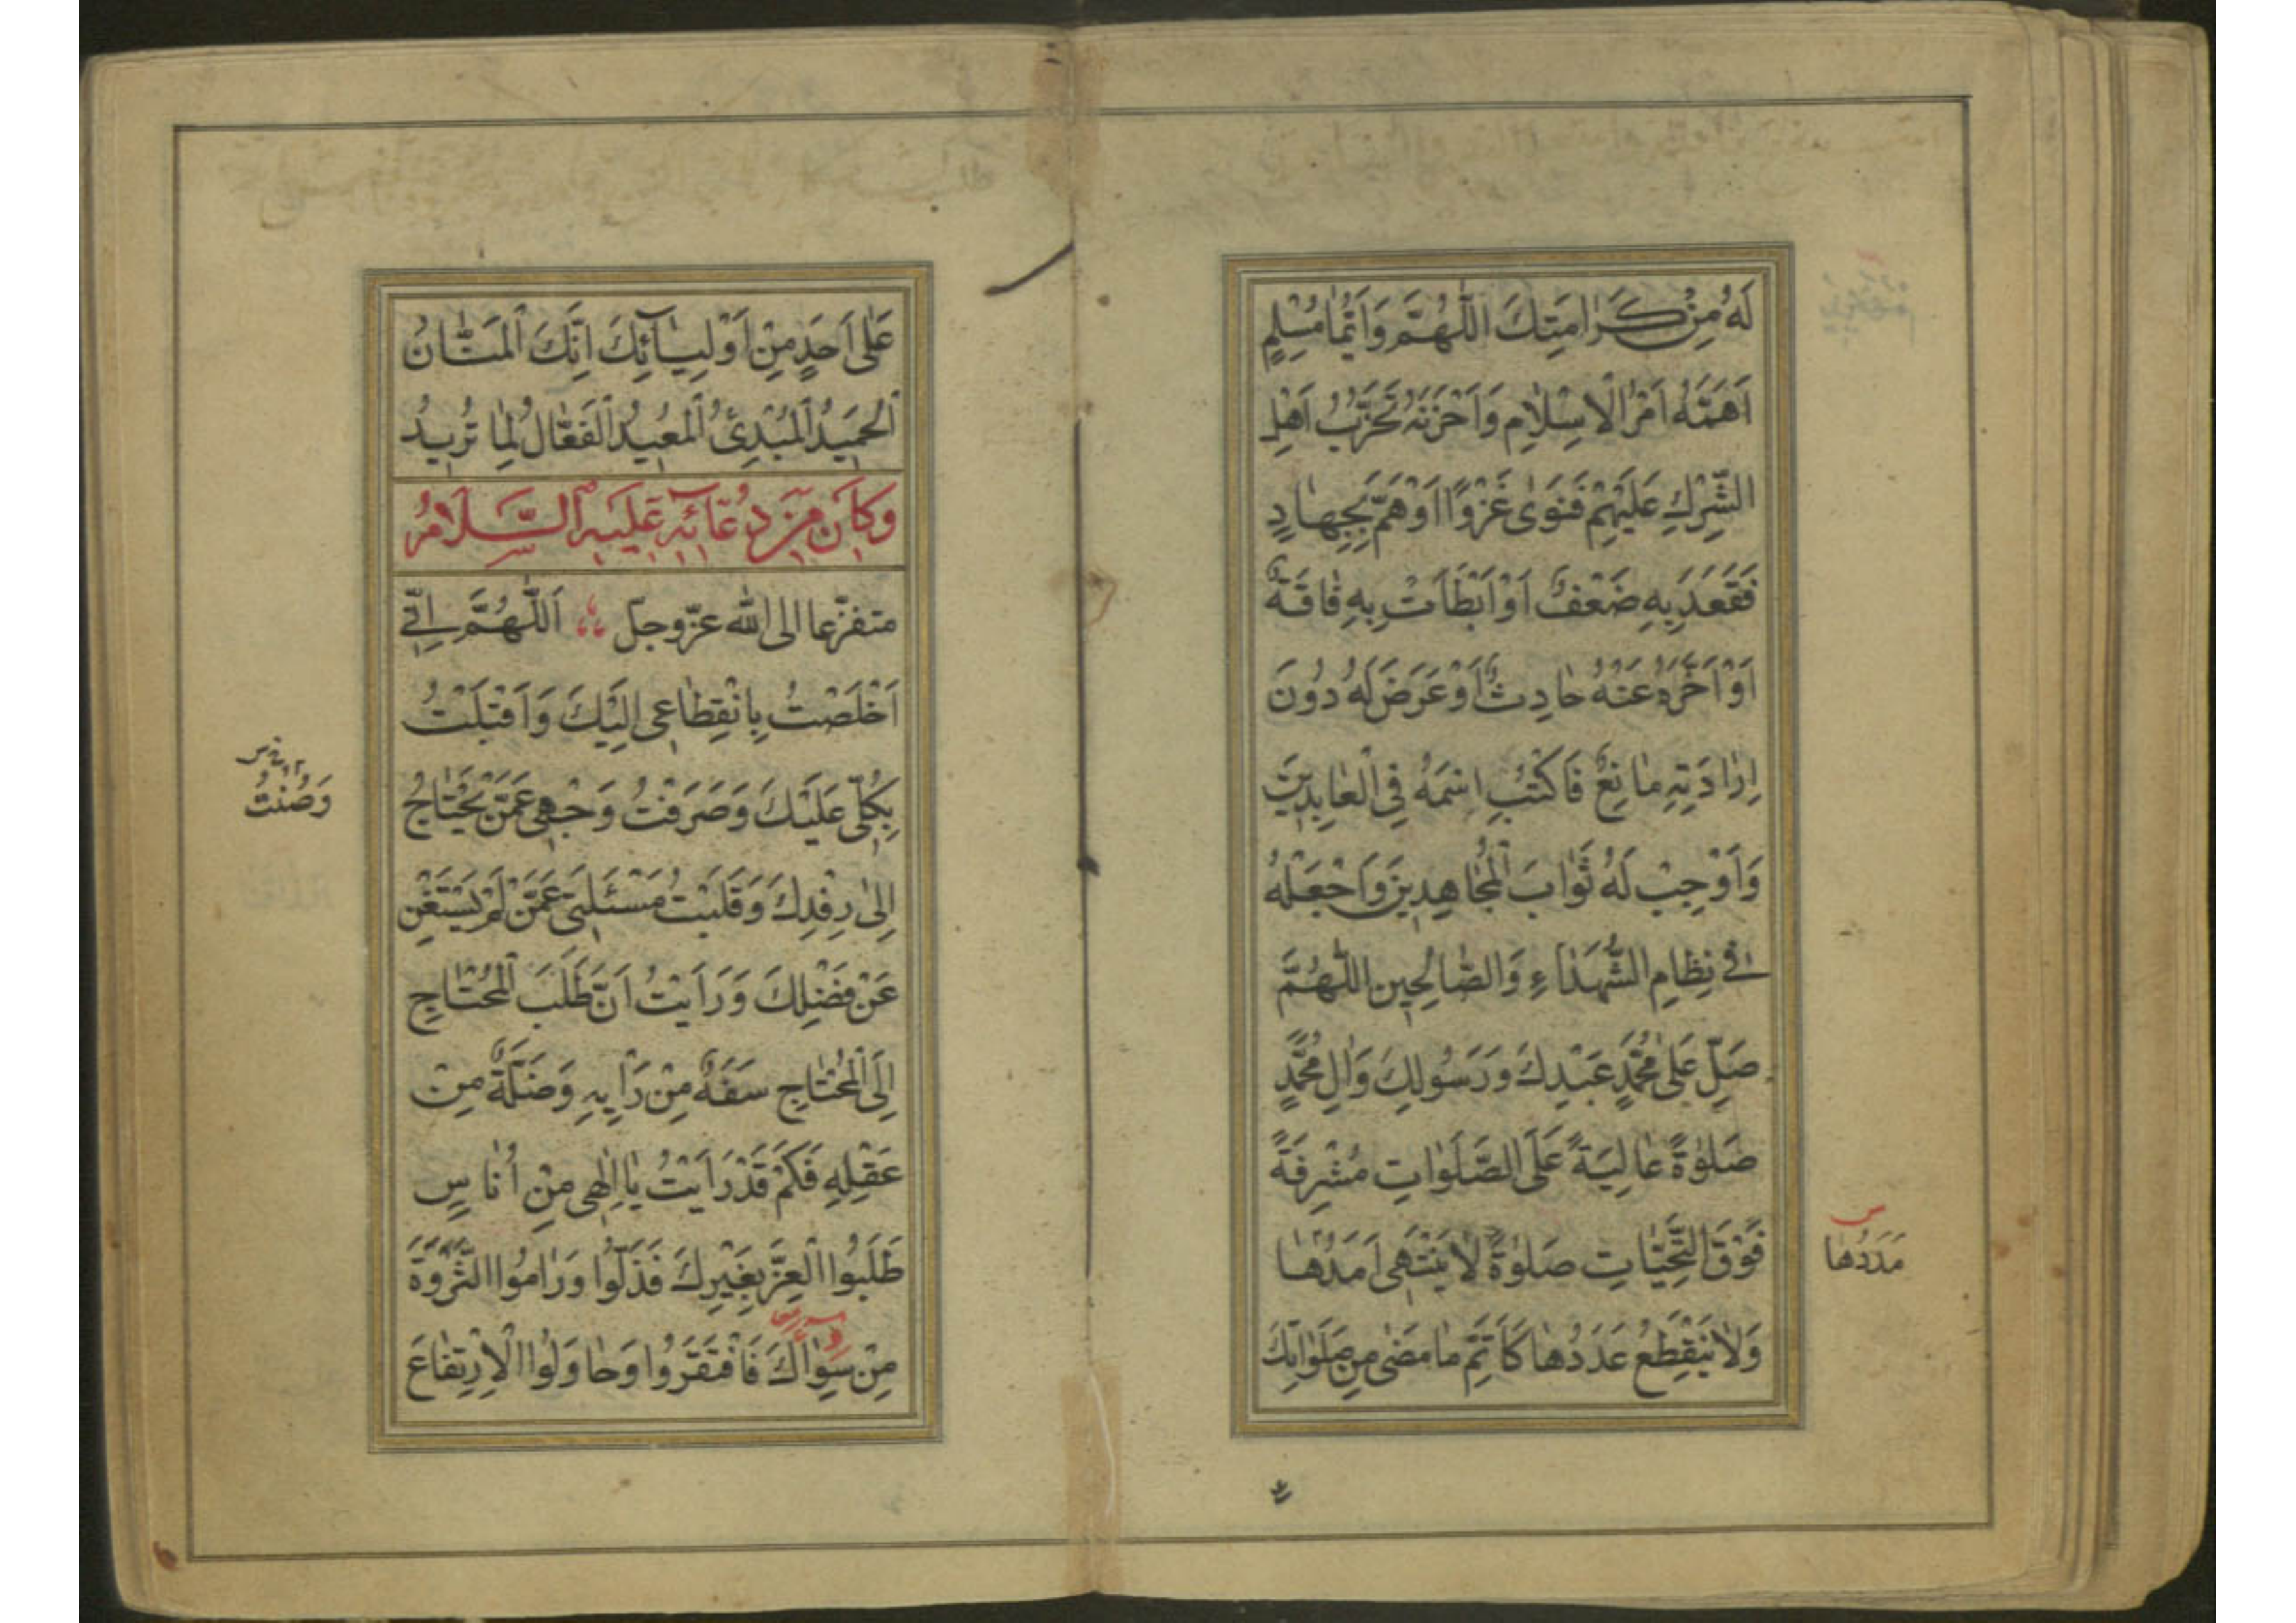 لَهُ مِنْ كَرٰامَتِكَ اللّٰهُمَّ وَاَيُّمٰا مُسْلِمٍ
اَهَمَّهُ اَمْرُ الْاِسْلٰامِ وَاَحْزَنَهُ تَحَزُّبُ اَهْلِ
الشِّرْكِ عَلَيْهِمْ فَنَوٰى غَزْوًا اَوْهَمَّ بِجِهٰادٍ
فَقَعَدَ بِهِ ضَعْفٌ اَوْ اَبْطَاَتْ بِهِ فٰاقَةٌ
اَوْ اَخَّرَهُ عَنْهُ حٰادِثٌ اَوْ عَرَضَ لَهُ دُونَ
اِرٰادَتِهِ مٰانِعٌ فَاكْتُبِ اسْمَهُ فِى الْعٰابِدِينَ
وَاَوْجِبْ لَهُ ثَوٰابَ الْمُجٰاهِدِينَ وَاجْعَلْهُ
فِى نِظٰامِ الشُّهَدٰاءِ وَالصّٰالِحِينَ اللّٰهُمَّ
صَلِّ عَلٰى مُحَمَّدٍ عَبْدِكَ وَرَسُولِكَ وَاٰلِ مُحَمَّدٍ
صَلٰوةً عٰالِيَةً عَلَى الصَّلَوٰاتِ مُشْرِفَةً
فَوْقَ التَّحِيّٰاتِ صَلٰوةً لٰا يَنْتَهِى اَمَدُهٰا
س
مَدَدُهٰا
وَلٰا يَنْقَطِعُ عَدَدُهٰا كَاَتَمِّ مٰا مَضٰى مِنْ صَلَوٰاتِكَ
عَلٰى اَحَدٍ مِنْ اَوْلِيٰآئِكَ اِنَّكَ الْمَنّٰانُ
الْحَمِيدُ الْمُبْدِئُ الْمُعِيدُ الْفَعّٰالُ لِمٰا تُرِيدُ
وَكَانَ مِنْ دُعَائِهِ عَلَيْهِ السَّلَامُ
متفزّعا الى الله عزّ وجلّ اَللّٰهُمَّ اِنِّى
اَخْلَصْتُ بِانْقِطٰاعِى اِلَيْكَ وَاَقْبَلْتُ
بِكُلِّى عَلَيْكَ وَصَرَفْتُ وَجْهِى عَمَّنْ يَحْتٰاجُ
وَصُنْتُ
اِلٰى رِفْدِكَ وَقَلَبْتُ مَسْئَلَتِى عَمَّنْ لَمْ يَسْتَغْنِ
عَنْ فَضْلِكَ وَرَاَيْتُ اَنَّ طَلَبَ الْمُحْتٰاجِ
اِلَى الْمُحْتٰاجِ سَفَهٌ مِنْ رَاْيِهِ وَضَلَّةٌ مِنْ
عَقْلِهِ فَكَمْ قَدْ رَاَيْتُ يٰا اِلٰهِى مِنْ اُنٰاسٍ
طَلَبُوا الْعِزَّ بِغَيْرِكَ فَذَلُّوا وَرٰامُوا الثَّرْوَةَ
مِنْ سِوٰاكَ فَافْتَقَرُوا وَحٰاوَلُوا الْاِرْتِفٰاعَ